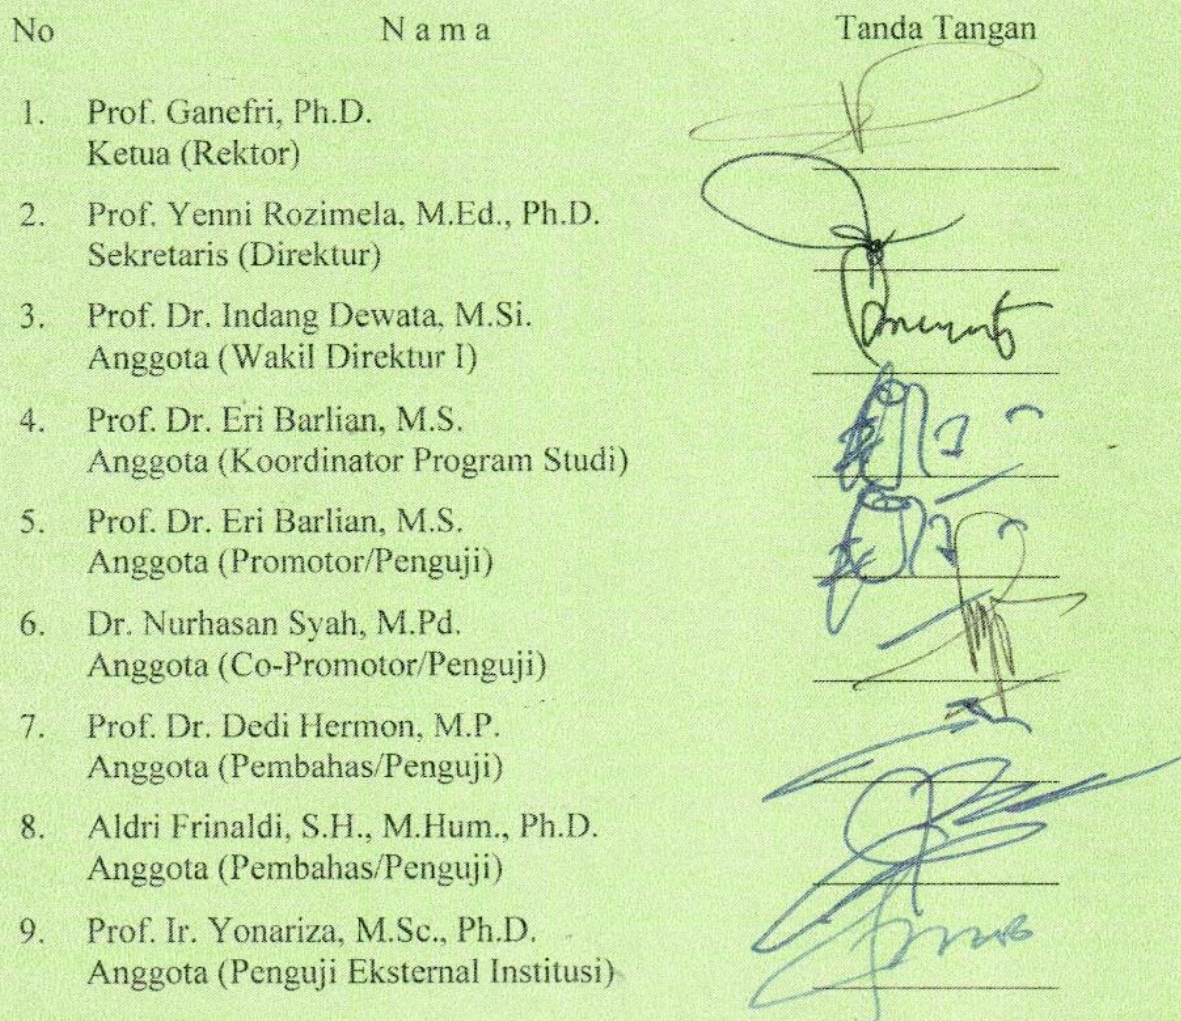 No N a m a Tanda Tangan
1. Prof. Ganefri, Ph.D.
Ketua (Rektor)
2. Prof. Yenni Rozimela, M.Ed., Ph.D.
Sekretaris (Direktur)
3. Prof. Dr. Indang Dewata, M.Si.
Anggota (Wakil Direktur I)
4. Prof. Dr. Eri Barlian, M.S.
Anggota (Koordinator Program Studi)
5. Prof. Dr. Eri Barlian, M.S.
Anggota (Promotor/Penguji)
6. Dr. Nurhasan Syah, M.Pd.
Anggota (Co-Promotor/Penguji)
7. Prof. Dr. Dedi Hermon, M.P.
Anggota (Pembahas/Penguji)
8. Aldri Frinaldi, S.H., M.Hum., Ph.D.
Anggota (Pembahas/Penguji)
9. Prof. Ir. Yonariza, M.Sc., Ph.D.
Anggota (Penguji Eksternal Institusi)